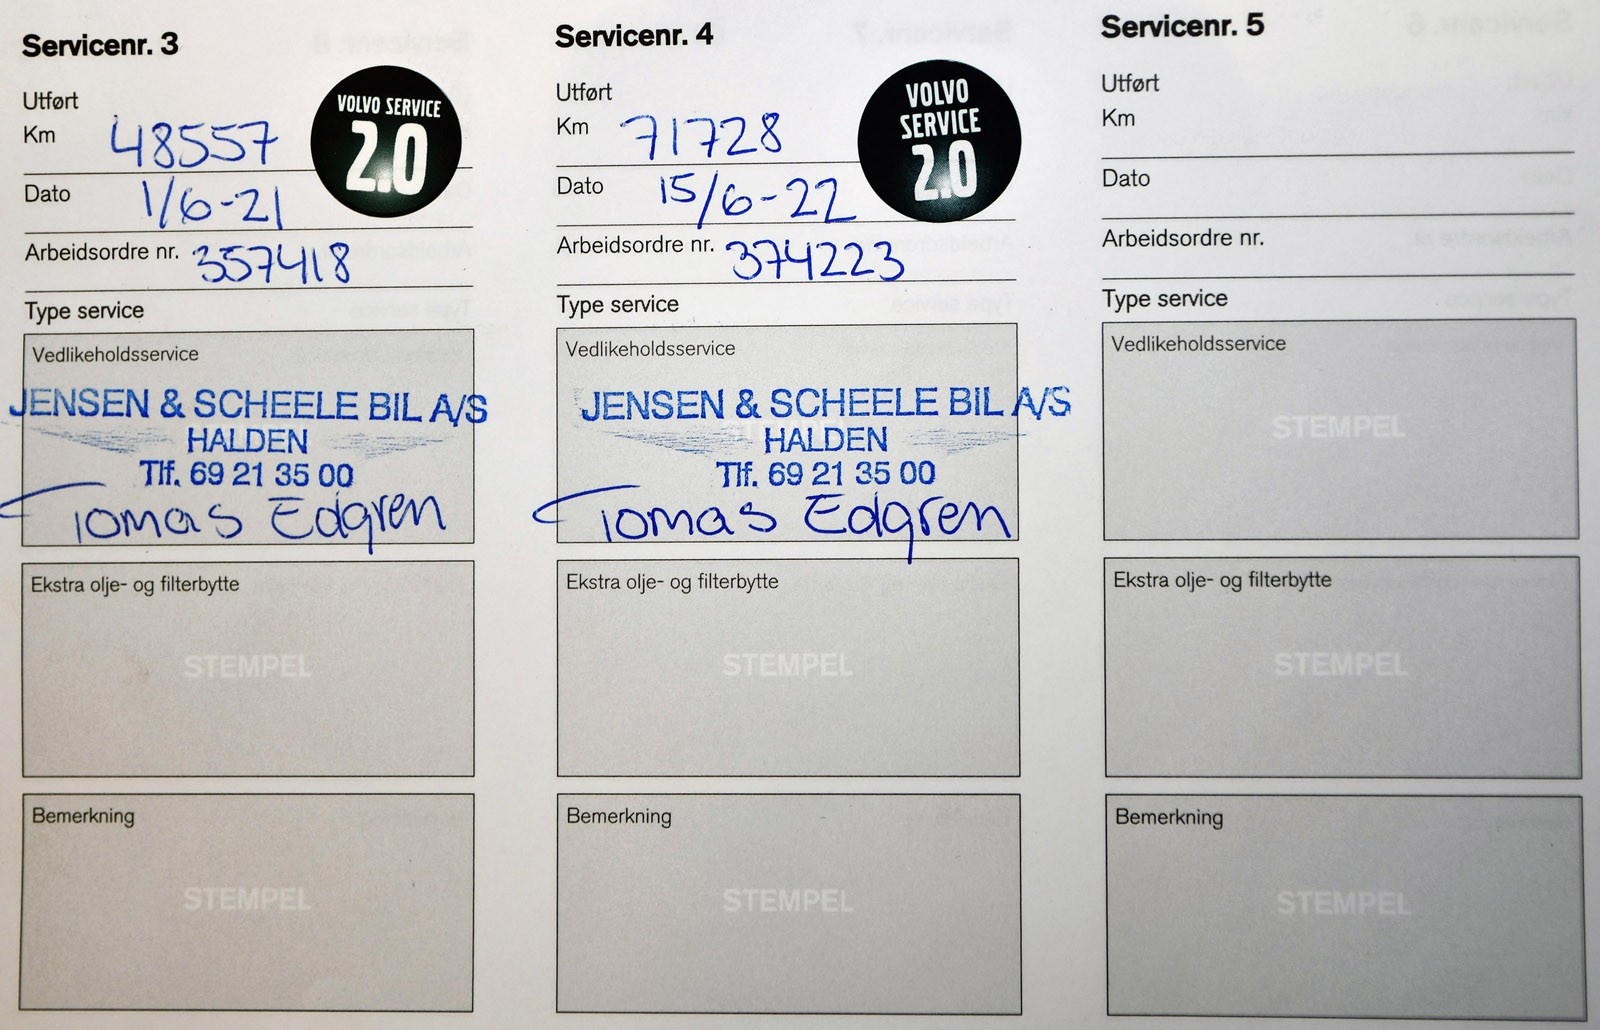 Servicenr. 3
Utført
Km 48557
VOLVO SERVICE
2.0
Dato 1/6-21
Arbeidsordre nr. 357418
Type service
Vedlikeholdsservice
JENSEN & SCHEELE BIL A/S
HALDEN
Tlf. 69 21 35 00
Tomas Edgren
Ekstra olje- og filterbytte
STEMPEL
Bemerkning
STEMPEL
Servicenr. 4
Utført
Km 71728
VOLVO
SERVICE
2.0
Dato 15/6-22
Arbeidsordre nr. 374223
Type service
Vedlikeholdsservice
JENSEN & SCHEELE BIL A/S
HALDEN
Tlf. 69 21 35 00
Tomas Edgren
Ekstra olje- og filterbytte
STEMPEL
Bemerkning
STEMPEL
Servicenr. 5
Utført
Km
Dato
Arbeidsordre nr.
Type service
Vedlikeholdsservice
STEMPEL
Ekstra olje- og filterbytte
STEMPEL
Bemerkning
STEMPEL